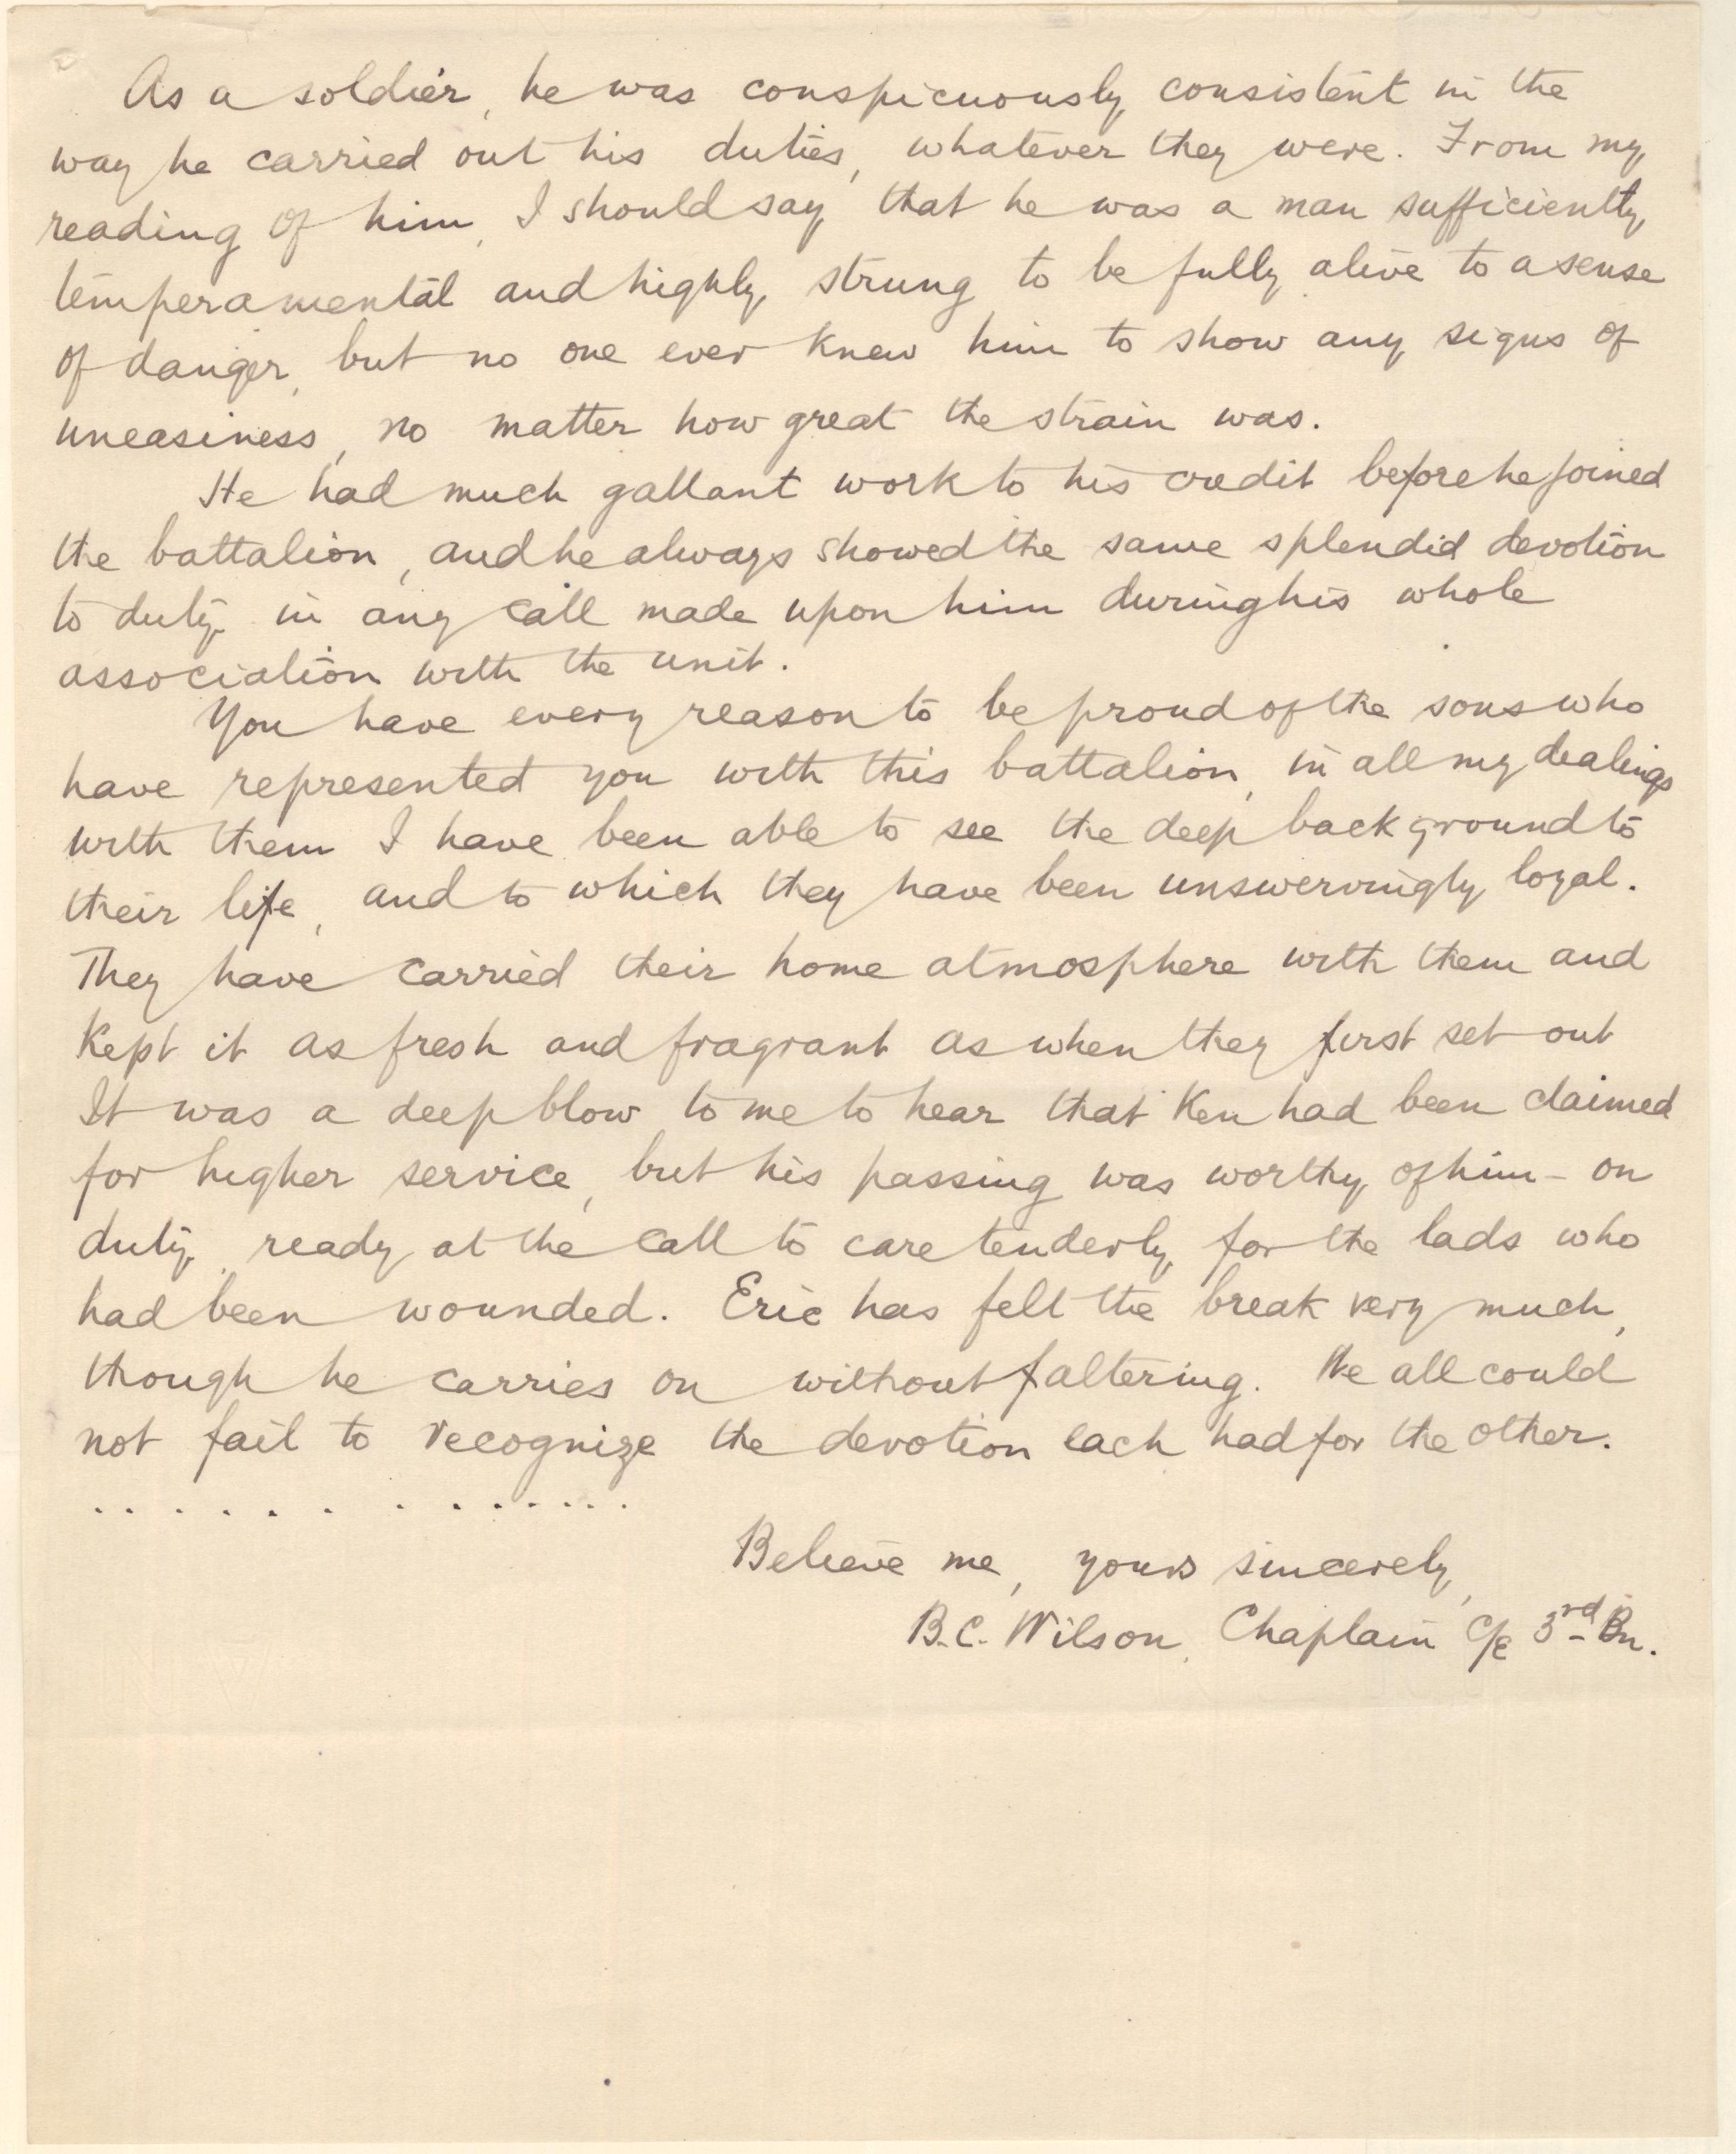 As a soldier, he was conspicuously consistent in the
way he carried out his duties, whatever they were. From my
reading of him, I should say that he was a man sufficiently
temperamental and highly strung to be fully alive to a sense
of danger, but no one ever knew him to show any signs of
uneasiness, no matter how great the strain was.
He had much gallant work to his credit before he joined
the battalion, and he always showed the same splendid devotion
to duty in any call made upon him during his whole
association with the unit.
You have every reason to be proud of the sons who
have represented you with this battalion, in all my dealings
with them I have been able to see the deep background to
their life, and to which they have been unswervingly loyal.
They have carried their home atmosphere with them and
kept it as fresh and fragrant as when they first set out
It was a deep blow to me to hear that Ken had been claimed
for higher service, but his passing was worthy of him - on
duty, ready at the call to care tenderly for the lads who
had been wounded. Eric has felt the break very much,
though he carries on without faltering. We all could
not fail to recognize the devotion each had for the other.
. . . . . . . . . . . . . .
Believe me, yours sincerely,
B.C. Wilson, Chaplain C/E 3rd Bn.